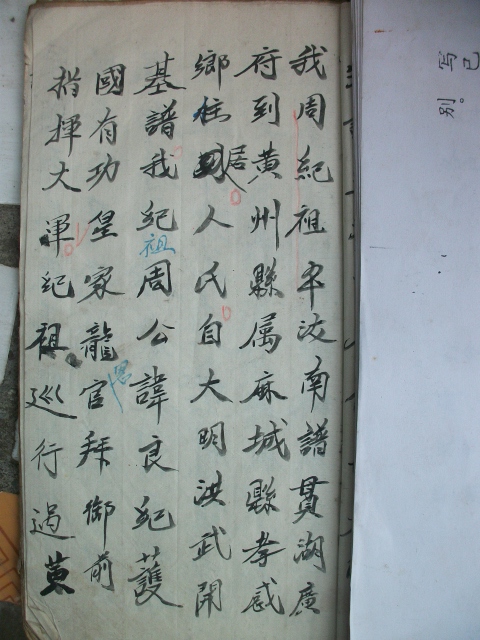 我周紀祖平汝南譜貫湖廣
府到黄州縣属麻城縣孝感
鄉住居人氏自大明洪武開
基譜我紀祖周公諱良紀護
國有功皇家龍恩官拜御前
指揮大軍紀祖巡行過
寫已
别。